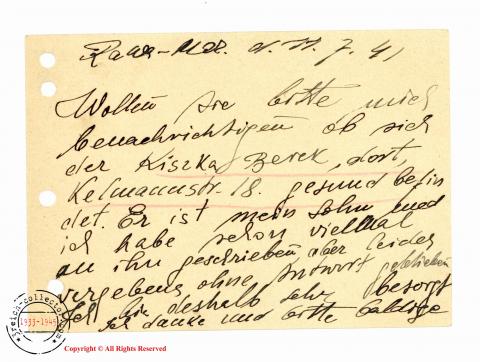 Rawa-Maz. d. 11. 7. 41
Wollen sie bitte mich
benachrichtigen ob sich
der Kiszka Berek, dort,
Kelmannstr. 18. gesund befin
det. Er ist mein Sohn und
ich habe schon vielmal
an ihn geschrieben, aber leider
vergebens, ohne Antwort geblieben
bin deshalb sehr besorgt
Ich danke und bitte baldige
reich-collector.com
1933-1945
Copyright © All Rights Reserved